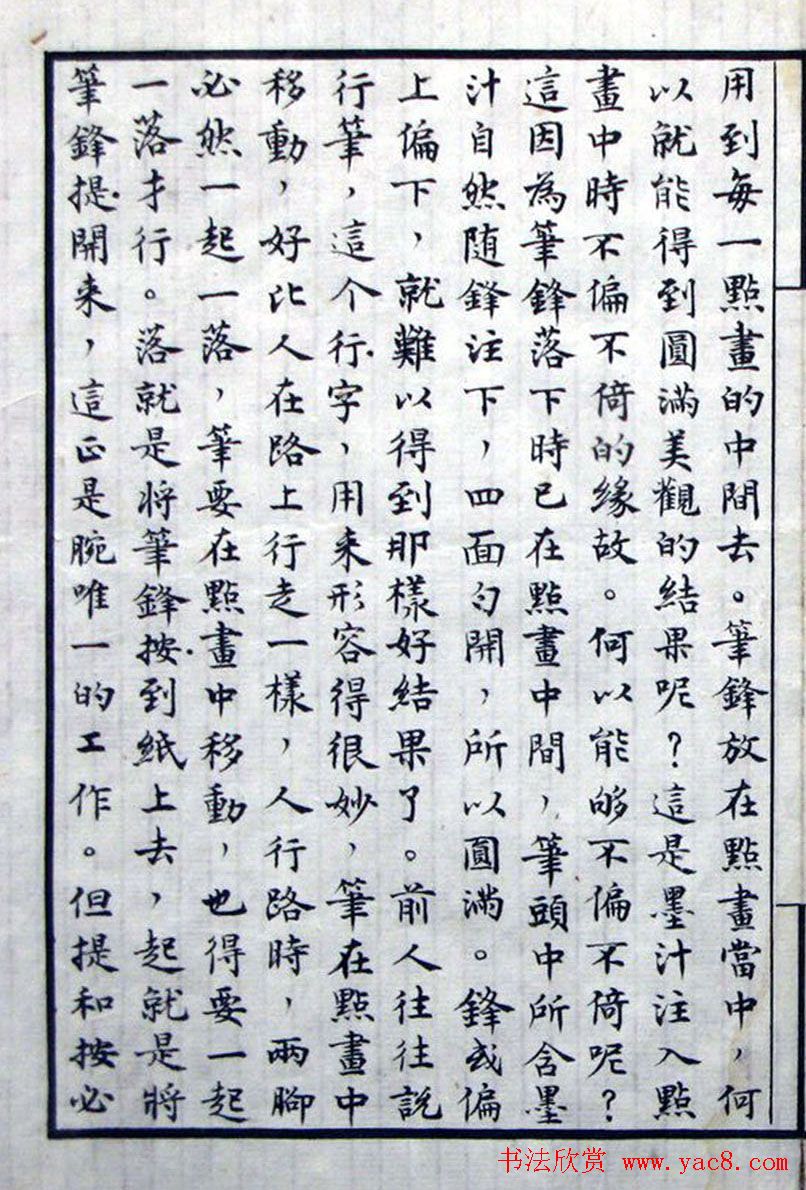 用到每一點畫的中間去。筆鋒放在點畫當中，何
以就能得到圓滿美觀的結果呢？這是墨汁注入點
畫中時不偏不倚的緣故。何以能够不偏不倚呢？
這因為筆鋒落下時已在點畫中間，筆頭中所含墨
汁自然随鋒注下，四面匀開，所以圓滿。鋒或偏
上偏下，就難以得到那樣好結果了。前人往往說
行筆，這个行字，用来形容得很妙，筆在點畫中
移動，好比人在路上行走一樣，人行路時，兩脚
必然一起一落，筆要在點畫中移動，也得要一起
一落才行。落就是將筆鋒按到紙上去，起就是將
筆鋒提開来，這正是腕唯一的工作。但提和按必
书法欣赏 www.yac8.com